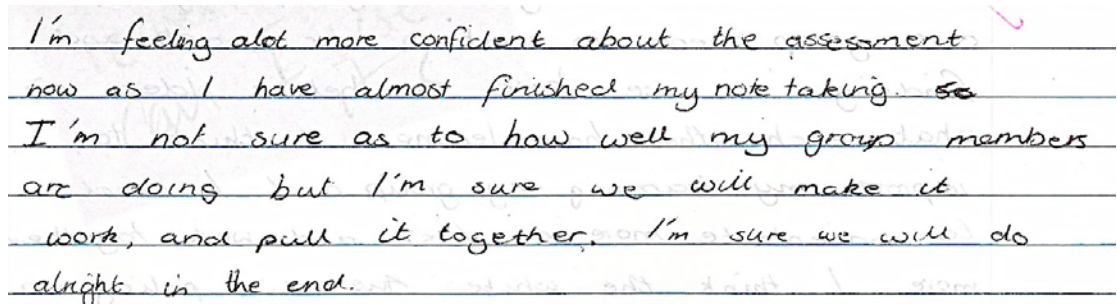 I'm feeling alot more confident about the assessment
now as I have almost finished my note taking. so
I'm not sure as to how well my group members
are doing but I'm sure we will make it
work, and pull it together. I'm sure we will do
alright in the end.